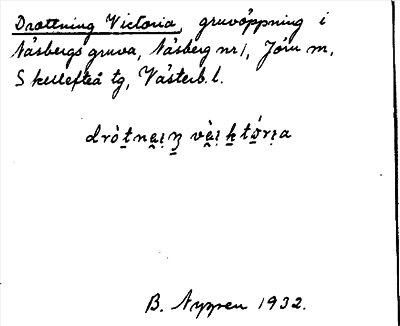 Drottning Victoria, gruvöppning i
Näsbergs gruva, Näsberg nr 1, Jörn sn,
Skellefteå tg, Västerb. l.
B. Nygren 1932.